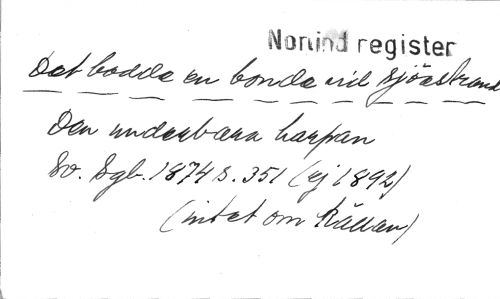 Norlind register
Det bodde en bonde vid sjöastrand
Den underbara harpan
Sv. Sgb. 1874 s. 351 (ej 1892)
(intet om källan)